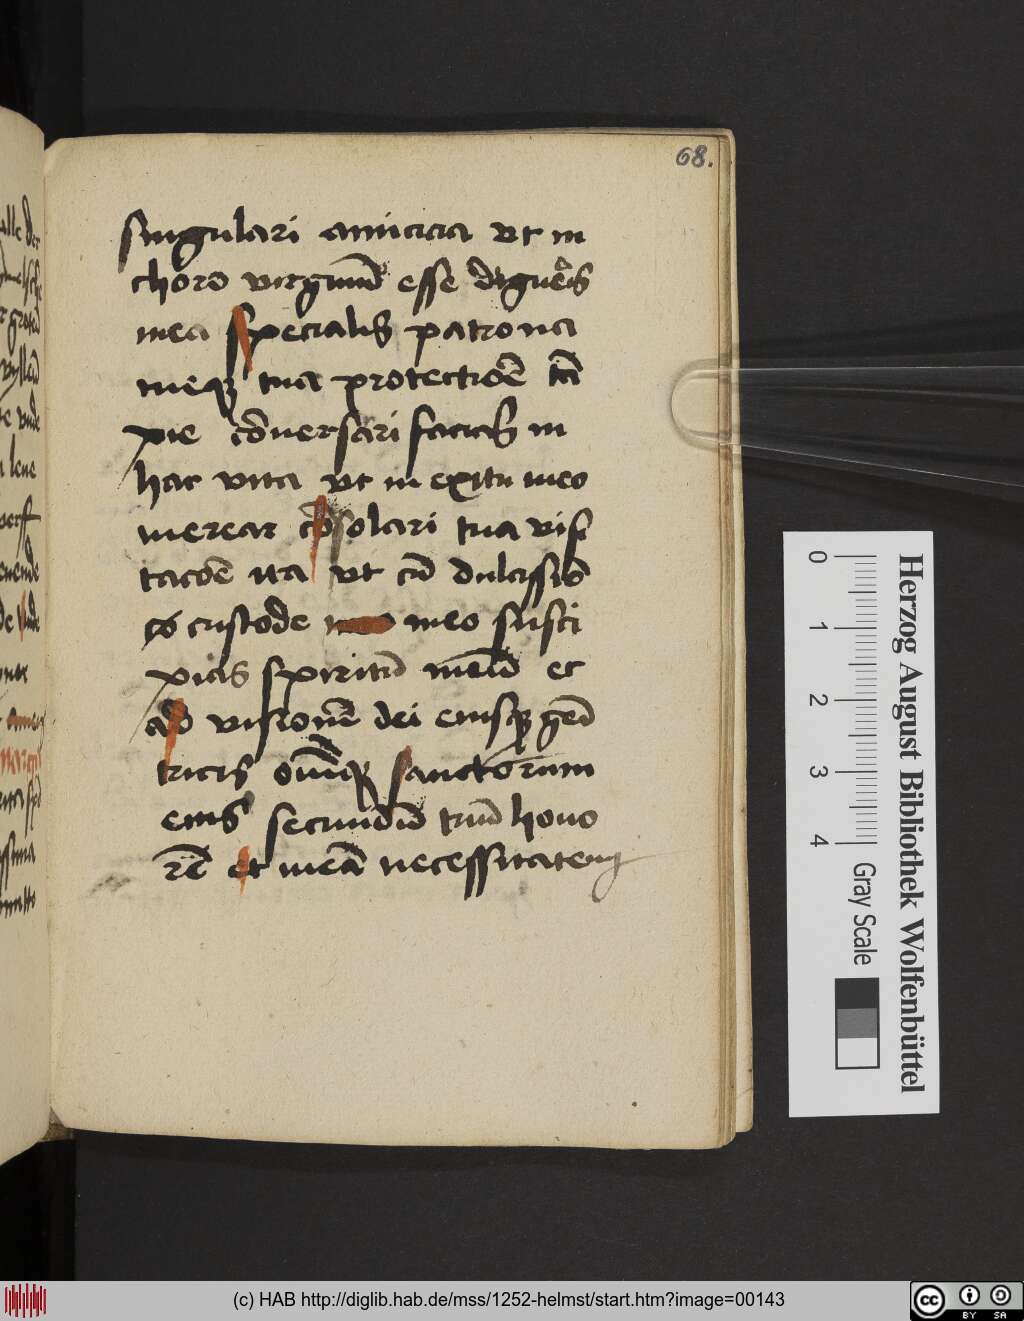 68.
singulari amicicia vt in
choro virginū esse digneris
mea specialis patrona
meqꝫ tua protectiōe tā
pie cōuersari facias in
hac vita vt in exitu meo
merear cōsolari tua visi
tacōe ita vt cū dulcissīo
custode meo susci
pias spiritū meū et
ad visionē dei eiusqꝫ geni
tricis oīmqꝫ sanctorum
eius secundū tuū hono
rē et meā necessitatem
0 1 2 3 4 Gray Scale
Herzog August Bibliothek Wolfenbüttel
(c) HAB http://diglib.hab.de/mss/1252-helmst/start.htm?image=00143
cc BY SA